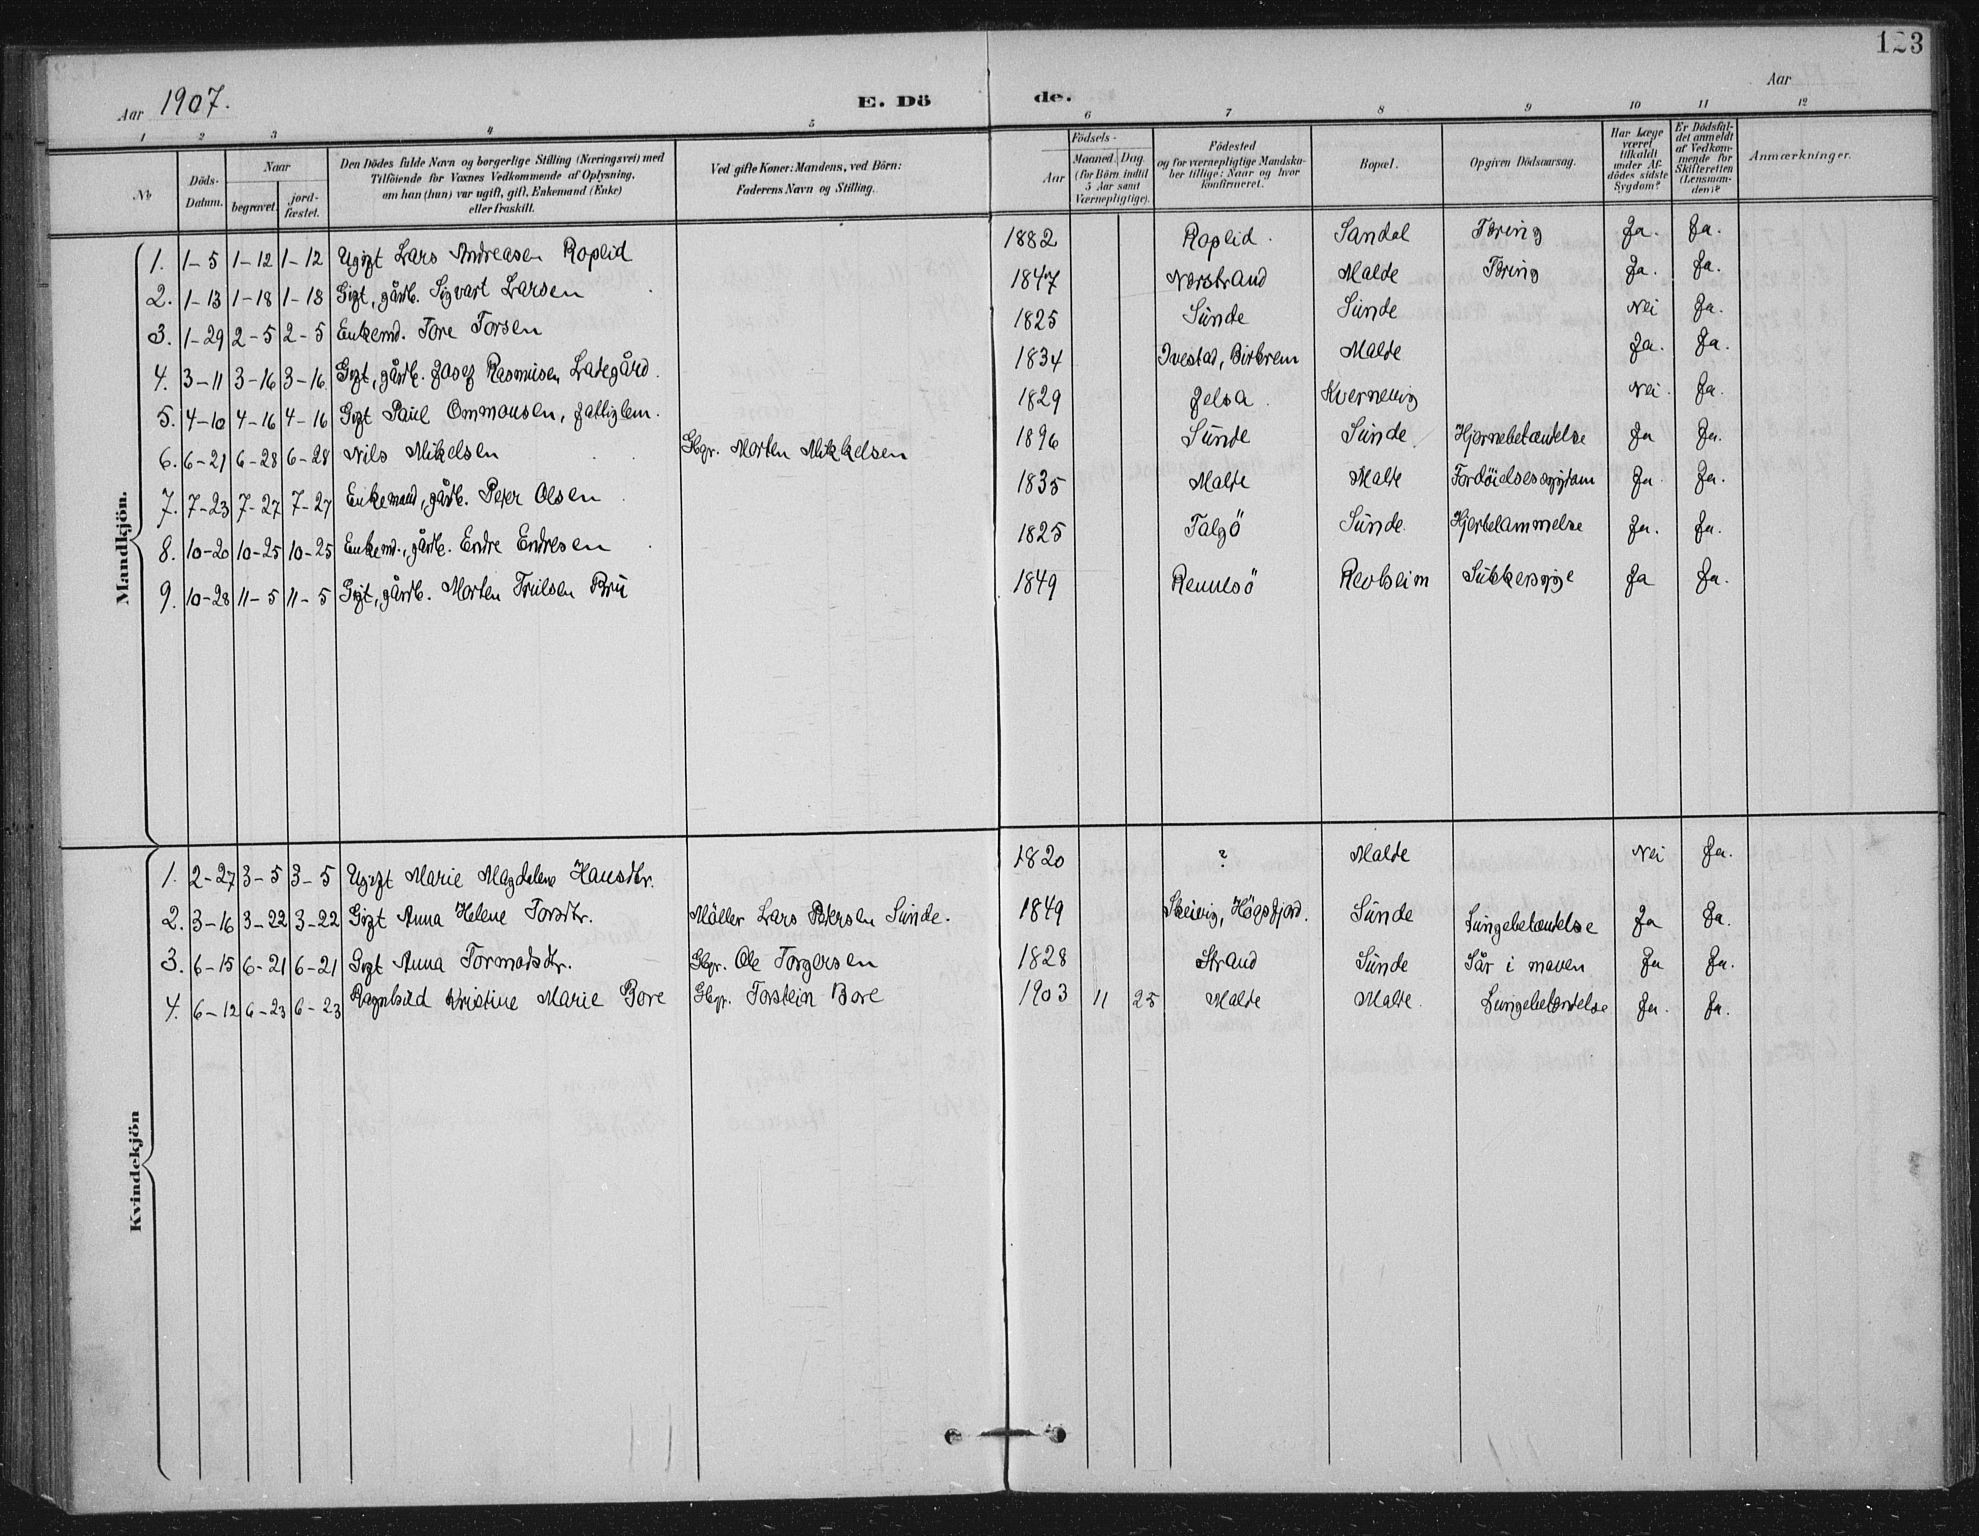 123
Aar 1907.
E. Dö de.
Aar
1 2 3 4 5 6 7 8 9 10 11 12
No.
Döds-Datum.
Naar
begravet.
jord-fæstet.
Den Dödes fulde Navn og borgerlige Stilling (Næringsvei) med
Tilföiende for Voxnes Vedkommende af Oplysning,
om han (hun) var ugift, gift, Enkemand (Enke)
eller fraskilt.
Ved gifte Koner: Mandens, ved Börn:
Faderens Navn og Stilling.
Födsels-
Aar
Maaned. Dag.
(for Börn indtil
5 Aar samt
Værnepligtige).
Födested
og for værnepligtige Mandska-
ber tillige: Naar og hvor
konfirmeret.
Bopæl.
Opgiven Dödsaarsag.
Har Læge
været
tilkaldt
under Af-
dödes sidste
Sygdom?
Er Dödsfal-
det anmeldt
af Vedkom-
mende for
Skifteretten
(Lensman-
den)?
Anmærkninger.
Mandkjön.
1. 1-5 1-12 1-12 Ugift Lars Andreasen Roplid 1882 Roplid. Sandal Tæring Ja. Ja.
2. 1-13 1-18 1-18 Gift, gårdb. Sigvart Larsen 1847 Nerstrand Malde Tæring Ja. Ja.
3. 1-29 2-5 2-5 Enkemd. Tore Torsen 1825 Sunde Sunde Nei Ja.
4. 3-11 3-16 3-16 Gift, gårdb. Josef Rasmusen Ladegård. 1834 Ivestad, Birkrem Malde Ja. Ja.
5. 4-10 4-16 4-16 Gift Paul Ommonsen, fattiglem. 1829 Jelsa. Kvernevig Nei. Ja.
6. 6-21 6-28 6-28 Nils Mikelsen Gbgr. Morten Mikkelsen 1896 Sunde Sunde Hjernebetændelse Ja Ja.
7. 7-23 7-27 7-27 Enkemand, gårdb. Peder Olsen 1835 Malde Malde Fordöielsessygdom Ja Ja.
8. 10-20 10-25 10-25 Enkemd., gårdb. Endre Endresen 1825 Talgö Sunde Hjertelammelse Ja. Ja.
9. 10-28 11-5 11-5 Gift, gårdb. Morten Trulsen Bru 1849 Rennesö Revheim Sukkersyge Ja Ja.
Kvindekjön
1. 2-27 3-5 3-5 Ugift Marie Magdalene Hansdtr. 1820 ? Malde Nei Ja.
2. 3-16 3-22 3-22 Gift Anna Helene Torsdtr. Möller Lars Petersen Sunde. 1849 Høgsfjord. Sunde Lungebetændelse Ja Ja.
3. 6-15 6-21 6-21 Gift Anna Tormodsdtr. Gbgr. Ole Torgersen 1828 Strand Sunde Sår i maven Ja Ja.
4. 6-12 6-23 6-23 Ragnhild Kristine Marie Bore Gbgr. Torstein Bore 1903 11 25 Malde Malde. Lungebetændelse Ja. Ja.